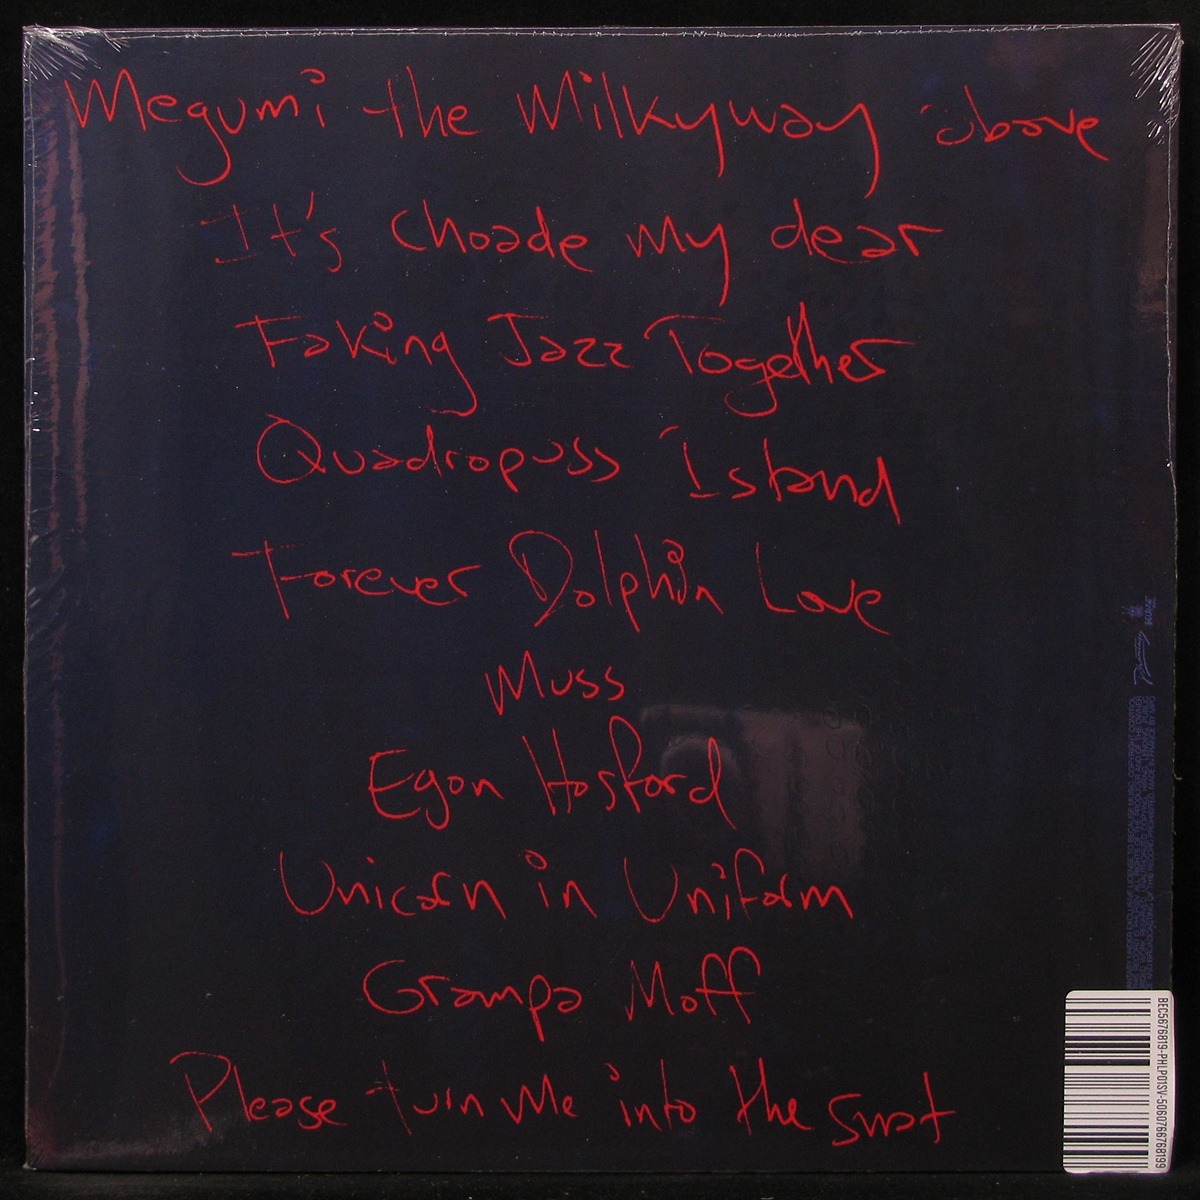 Megumi the Milkyway above
It's choade my dear
Faking Jazz Together
Quadropuss Island
Forever Dolphin Love
Muss
Egon Hosford
Unicorn in Uniform
Grampa Moff
Please turn me into the snat
BEC5676819-PHLP01SV-5060766768199